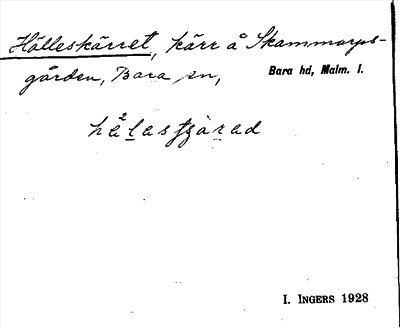 Hålleskärret, kärr å Skammarps-
gården, Bara sn,
Bara hd, Malm. l.
I. INGERS 1928